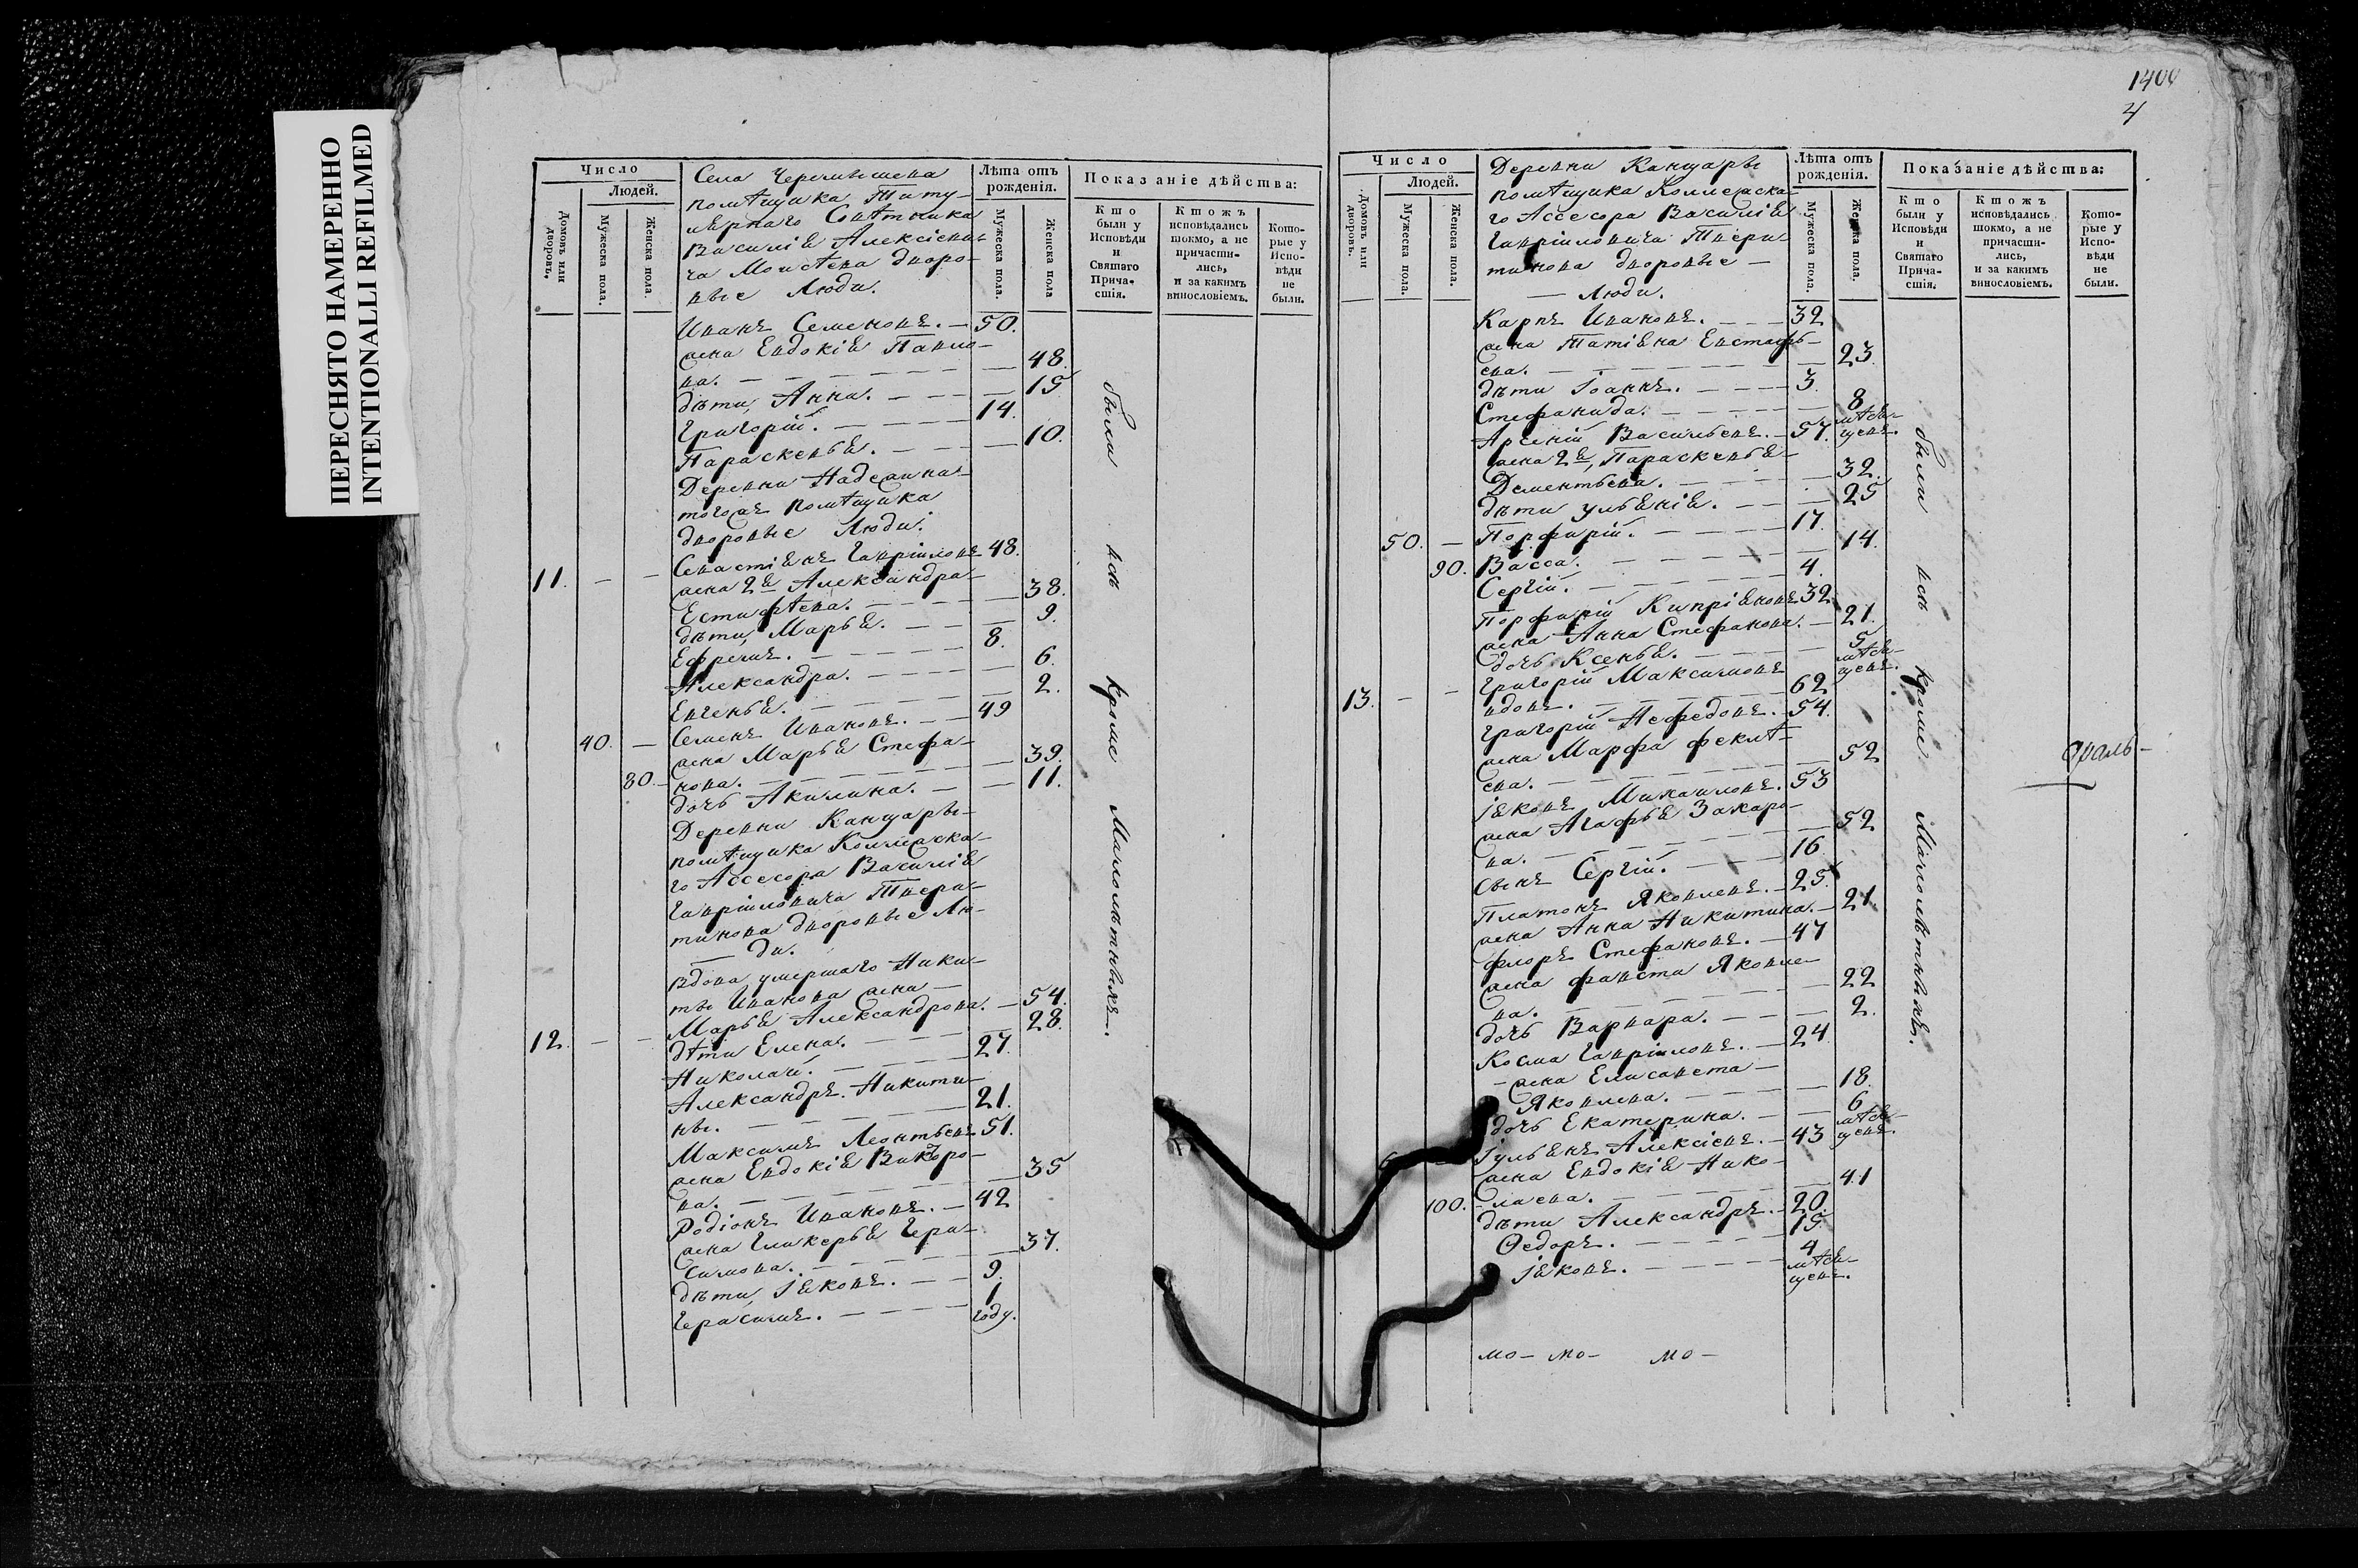 ПЕРЕСНЯТО НАМЕРЕННО
INTENTIONALLI REFILMED
Число
Людей.
Домовъ или дворовъ.
Мужеска пола.
Женска пола.
Села Черемышева
помѣщика Титу-
лярнаго Совѣтника
Василія Алексіеви-
ча Моисѣева дворо-
выє Люди.
Лѣта отъ рожденія.
Мужеска пола.
Женска пола
Показаніе дѣйства:
Кто были у Исповѣди и Святаго Прича-стія.
Ктожъ исповѣдались токмо, а не причасти-лись, и за какимъ винословіемъ.
Кото-рые у Испо-вѣди не были.
Иванъ Семеновъ. — 50.
жена Евдокія Павло-
ва. — 48.
дѣти, Анна. — 15
Григорій. — 14.
Параскевья. — 10.
Деревни Надежина
тогожъ помѣщика
дворовые Люди.
11. — — Севастіянъ Гавріиловъ 48.
жена 2я Александра
Естифѣева. — 38.
дѣти, Марья. — 9.
Ефремъ. — 8.
Александра. — 6.
Евгенья. — 2.
40. — Семенъ Ивановъ. — 49
жена Марья Стефа-
80. — нова. — 39.
дочь Акилина. — 11.
Деревни Канцары
помѣщика Коллежска-
го Ассесора Василія
Гавріиловича Твери-
тинова дворовые Лю-
— ди.
Вдова умершаго Ники-
ты Иванова жена —
12. — — Марья Александрова. — 54.
дѣти Елена. — 28.
Николай. — 27.
Александръ Никити-
ны. — 21.
Максимъ Леонтьевъ 51.
жена Евдокія Викторо-
ва. — 35
Родіонъ Ивановъ. — 42
жена Гликерья Гера-
симова. — 37.
дѣти, Іяковъ. — 9.
Герасимъ. — 1 году.
были всѣ кромѣ Малолѣтныхъ.
1400
4
Число
Людей.
Домовъ или дворовъ.
Мужеска пола.
Женска пола.
Деревни Канцары
помѣщика Коллежска-
го Ассесора Василія
Гавріиловича Твери-
тинова дворовые —
— Люди.
Лѣта отъ рожденія.
Мужеска пола.
Женска пола.
Показаніе дѣйства:
Кто были у Исповѣди и Святаго Прича-стія.
Ктожъ исповѣдались токмо, а не причасти-лись, и за какимъ винословіемъ.
Кото-рые у Испо-вѣди не были.
Карпъ Ивановъ. — 32
жена Татіяна Евстафь-
ева. — 23.
дѣти Іоаннъ. — 3.
Стефанида. — 8 мѣся-цевъ.
Арсеній Васильевъ. — 57.
жена 2я, Параскевья
Дементьева. — 32.
дѣти Ульянія. — 25
50. — Порфирій. — 17.
90. Васса. — 14.
Сергій. — 4.
Порфирій Кипріяновъ 32
жена Анна Стефанова. — 21.
дочь Ксенья. — 5 мѣся-цевъ.
13. — — Григорій Максимовъ
вдовъ. — 62
Григорій Нефедовъ. — 54.
жена Марфа Феклѣ-
ева. — 52
Іяковъ Михаиловъ. 53
жена Агафья Захаро-
ва. — 52
сынъ Сергій. — 16
Платонъ Яковлевъ. — 25.
жена Анна Никитина. — 21.
Флоръ Стефановъ. — 47
жена Фавста Яковле-
ва. — 22
дочь Варвара. — 2.
Косма Гавріиловъ. — 24
— жена Елисавета —
Яковлева. — 18.
дочь Екатерина. — 6 мѣся-цевъ.
Іульянъ Алексіевъ. — 43
жена Евдокія Нико-
100. — лаева. — 41
дѣти Александръ. — 20.
Ѳедоръ. — 15.
Іяковъ. — 4 мѣся-цевъ.
были всѣ кромѣ Малолѣтныхъ.
мо- мо- мо-